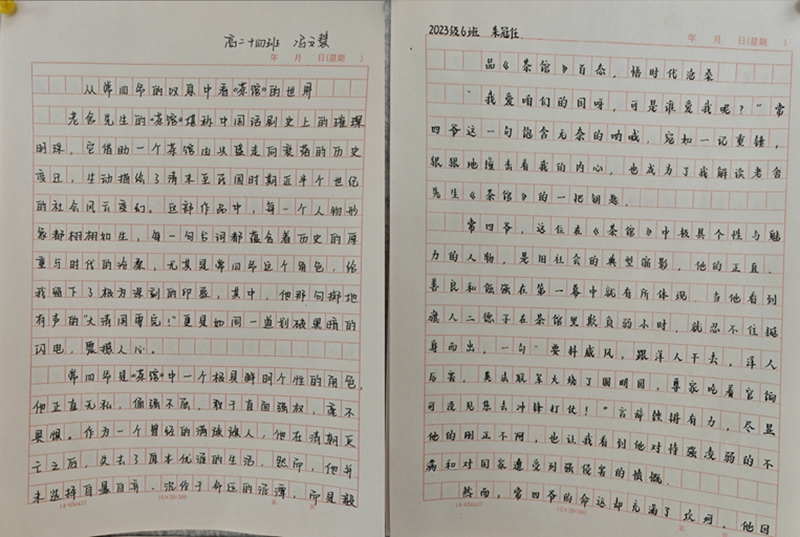 高二十四班 冯文慧
年 月 日(星期 )
从常四爷的叹息中看《茶馆》的世界
老舍先生的《茶馆》堪称中国话剧史上的璀璨
明珠,它借助一个茶馆由兴盛走向衰落的历史
变迁,生动描绘了清末至民国时期近半个世纪
的社会风云变幻。在部作品中,每一个人物形
象都栩栩如生,每一句台词都蕴含着历史的厚
重与时代的沧桑,尤其是常四爷这个角色,给
我留下了极为深刻的印象,其中,他那句掷地
有声的“大清国要完!”更是如同一道划破黑暗的
闪电,震撼人心。
常四爷是《茶馆》中一个极具鲜明个性的角色,
他正直无私,倔强不屈,敢于直面强权,毫不
畏惧。作为一个曾经的满族旗人,他在清朝灭
亡之后,失去了原本优渥的生活,然而,他并
未选择自暴自弃、沉沦于命运的泥潭,而是毅
14-656437
15×20=300
第 页
2023级6班 朱冠任
年 月 日(星期 )
品《茶馆》百态,悟时代沧桑
“我爱咱们的国呀,可是谁爱我呢?”常
四爷这一句饱含无奈的呐喊,宛如一记重锤,
狠狠地撞击着我的内心,也成为了我解读老舍
先生《茶馆》的一把钥匙。
常四爷,这位在《茶馆》中极具个性与魅
力的人物,是旧社会的典型缩影,他的正直、
善良和倔强在第一幕中就有所体现。当他看到
旗人二德子在茶馆里欺负弱小时,就忍不住挺
身而出,一句“要抖威风,跟洋人干去,洋人
厉害,英法联军大烧了圆明园,尊家吃着官饷
可没见您去冲锋打仗!”言辞铿锵有力,尽显
他的刚正不阿,也让我看到他对恃强凌弱的不
满和对国家遭受列强侵害的愤慨。
然而,常四爷的命运却充满了坎坷,他因
14-656437
15×20=300
第 页